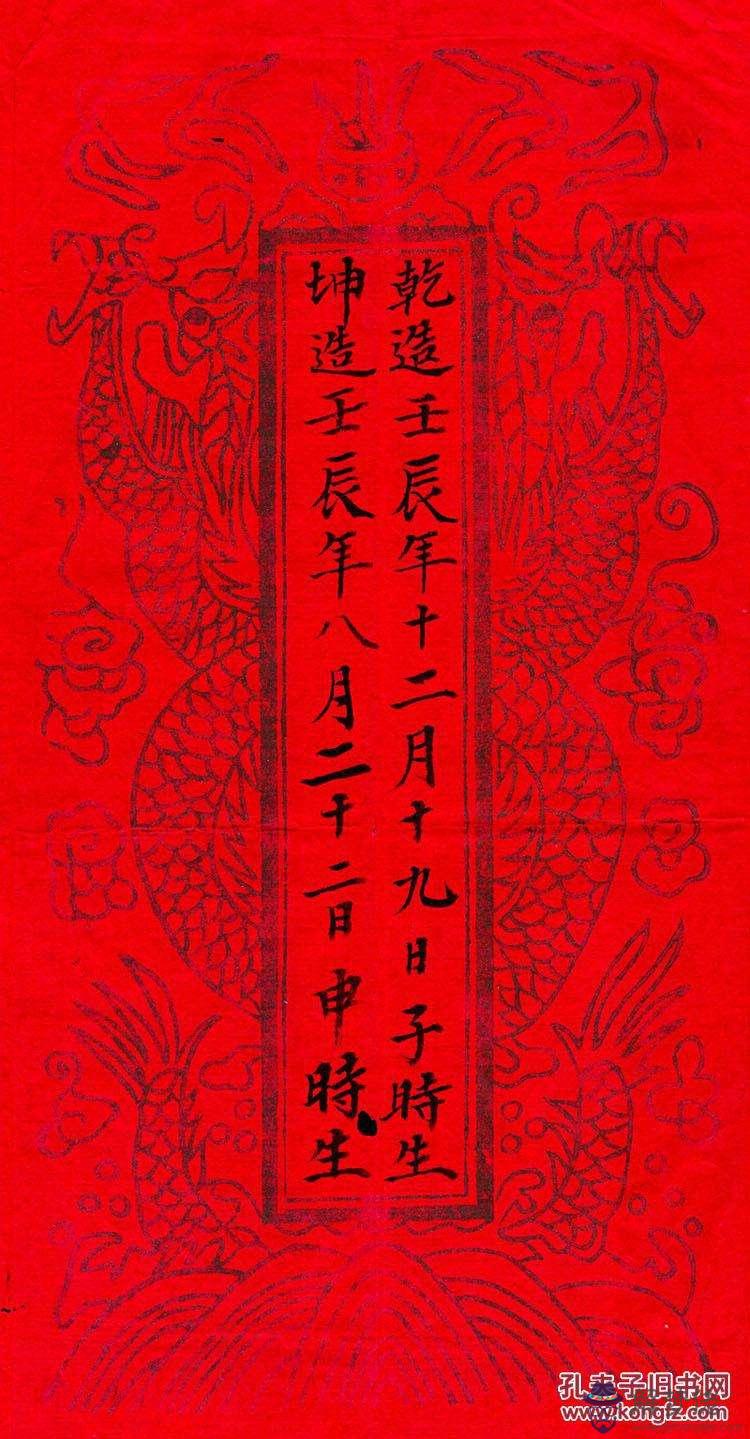 乾造壬辰年十二月十九日子時生
坤造壬辰年八月二十二日申時生
孔夫子旧书网
www.kongfz.com